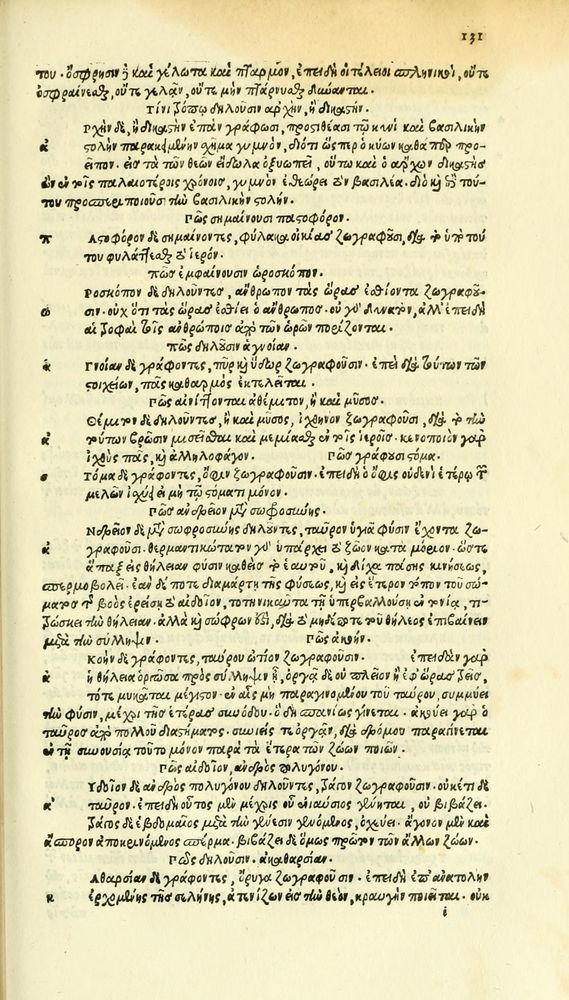 131
του. ὄσφρησιν ἢ καὶ γέλωτα καὶ πταρμὸν, ἐπειδὴ οἱ τέλειοι σπληνικοὶ, οὔτε
ὀσφραίνεσθαι, οὔτε γελᾶν, οὔτε μὴν πτάρνυσθαι δύνανται.
Τίνι τρόπῳ δηλοῦσιν ἀρχὴν, ἢ δικαστήν.
Ρχὴν δὲ, ἢ δικαστὴν ἐπὰν γράφωσι, προστιθέασι τῷ κυνὶ καὶ βασιλικὴν
ἀ στολὴν παρακειμένην σχῆμα γυμνὸν, διότι ὥσπερ ὁ κύων καθάπερ προ-
εῖπον. εἰς τὰ τῶν θεῶν εἴδωλα ὀξυωπεῖ, οὕτω καὶ ὁ ἄρχων δικαστὴς
ὢν ἐν τοῖς παλαιοτέροις χρόνοις, γυμνὸν ἐθεώρει τὸν βασιλέα. διὸ καὶ ἐπὶ τού-
του προσπεριποιοῦσι τὴν βασιλικὴν στολήν.
Πῶς σημαίνουσι παστοφόρον.
π Αστοφόρον δὲ σημαίνοντες, φύλακα οἰκίας ζωγραφοῦσι, διὰ τὸ ὑπὸ τού
του φυλάττεσθαι τὸ ἱερόν.
πῶς ἐμφαίνουσιν ὡροσκόπον.
Ροσκόπον δὲ δηλοῦντες, ἄνθρωπον τὰς ὥρας ἐσθίοντα ζωγραφοῦ-
ω σιν. οὐχ ὅτι τὰς ὥρας ἐσθίει ὁ ἄνθρωπος. οὐ γὰρ δυνατὸν, ἀλλ' ἐπειδὴ
αἱ τροφαὶ τοῖς ἀνθρώποις ἀπὸ τῶν ὡρῶν πορίζονται.
πῶς δηλοῦσιν ἁγνείαν.
ἁ Γνείαν δὲ γράφοντες, πῦρ καὶ ὕδωρ ζωγραφοῦσιν. ἐπεὶ διὰ τούτων τῶν
στοιχείων, πᾶς καθαρμὸς ἐκτελεῖται.
Πῶς αἰνίττονται ἀθέμιτον, ἢ καὶ μῦσος.
Θέμιτον δὲ δηλοῦντες, ἢ καὶ μῦσος, ἰχθὺν ζωγραφοῦσι, διὰ τὸ τὴν
ἀ τούτων βρῶσιν μισεῖσθαι καὶ μεμιάνθαι ἐν τοῖς ἱεροῖς. κενοποιὸν γὰρ
ἰχθὺς πᾶς, καὶ ἀλληλοφάγον. Πῶς γράφουσι στόμα.
σ Τόμα δὲ γράφοντες, ὄφιν ζωγραφοῦσιν. ἐπειδὴ ὁ ὄφις οὐδενὶ ἑτέρῳ τῶν
μελῶν ἰσχύει μὴ τῷ στόματι μόνον.
Πῶς ἀνδρεῖον μετὰ σωφροσύνης.
Νδρεῖον δὲ μετὰ σωφροσύνης δηλοῦντες, ταῦρον ὑγιᾶ φύσιν ἔχοντα ζω-
ἀ γραφοῦσι. θερμαντικώτατον γὰρ ὑπάρχει τὸ ζῷον κατὰ μόριον. ὥστε
ἅπαξ εἰς θήλειαν φύσιν καθεὶς τὸ ἑαυτοῦ, καὶ δίχα πάσης κινήσεως,
σπερμοβολεῖ. ἐὰν δέ ποτε διαμάρτῃ τῆς φύσεως, καὶ εἰς ἕτερον τόπον τοῦ σώ-
ματος τῆς βοὸς ἐρείσῃ τὸ αἰδοῖον, τοτηνικαῦτα τῇ ὑπερβαλλούσῃ εὐτονίᾳ, τι-
τρώσκει τὴν θήλειαν. ἀλλὰ καὶ σώφρων ἐστὶ, διὰ τὸ μηδέποτε τοῦ θήλεος ἐπιβαίνειν
μετὰ τὴν σύλληψιν. Πῶς ἀκοήν.
Κοὴν δὲ γράφοντες, ταύρου ὠτίον ζωγραφοῦσιν. ἐπειδὰν γὰρ
ἀ ἡ θήλεια ὀργῶσα πρὸς σύλληψιν ᾖ, ὀργᾷ δὲ οὐ πλεῖον ἢ ἐφ' ὥρας τρεῖς,
τότε μυκᾶται μέγιστον. ἐν αἷς μὴ παραγινομένου τοῦ ταύρου, συμμύει
τὴν φύσιν, μέχρι τῆς ἑτέρας συνόδου. ὃ δὴ σπανίως γίνεται. ἀκούει γὰρ ὁ
ταῦρος ἀπὸ πολλοῦ διαστήματος. συνιείς τε ὀργᾶν, διὰ δρόμου παραγίνεται
ἐν τῇ συνουσίᾳ τοῦτο μόνον παρὰ τὰ ἕτερα τῶν ζώων ποιῶν.
Πῶς αἰδοῖον, ἀνδρὸς πολυγόνου.
Υδοῖον δὲ ἀνδρὸς πολυγόνου δηλοῦντες, τράγον ζωγραφοῦσιν. οὐκέτι δὲ
ἀ ταῦρον. ἐπειδὴ οὗτος μὲν μέχρις οὗ ἐνιαύσιος γένηται, οὐ βιβάζει.
τράγος δὲ ἑβδομαῖος μετὰ τὴν γένεσιν γενόμενος, ὀχεύει. ἄγονον μὲν καὶ
ἄσπορον ἀποκρινόμενος σπέρμα. βιβάζει δὲ ὅμως πρῶτον τῶν ἄλλων ζώων.
Πῶς δηλοῦσιν. ἀκαθαρσίαν.
Αθαρσίαν δὲ γράφοντες, ὄρυγα ζωγραφοῦσιν. ἐπειδὴ ἐπ' ἀνατολὴν
κ ἐρχομένης τῆς σελήνης, ἀτενίζων εἰς τὴν θεὸν, κραυγὴν ποιεῖται. οὐκ
i